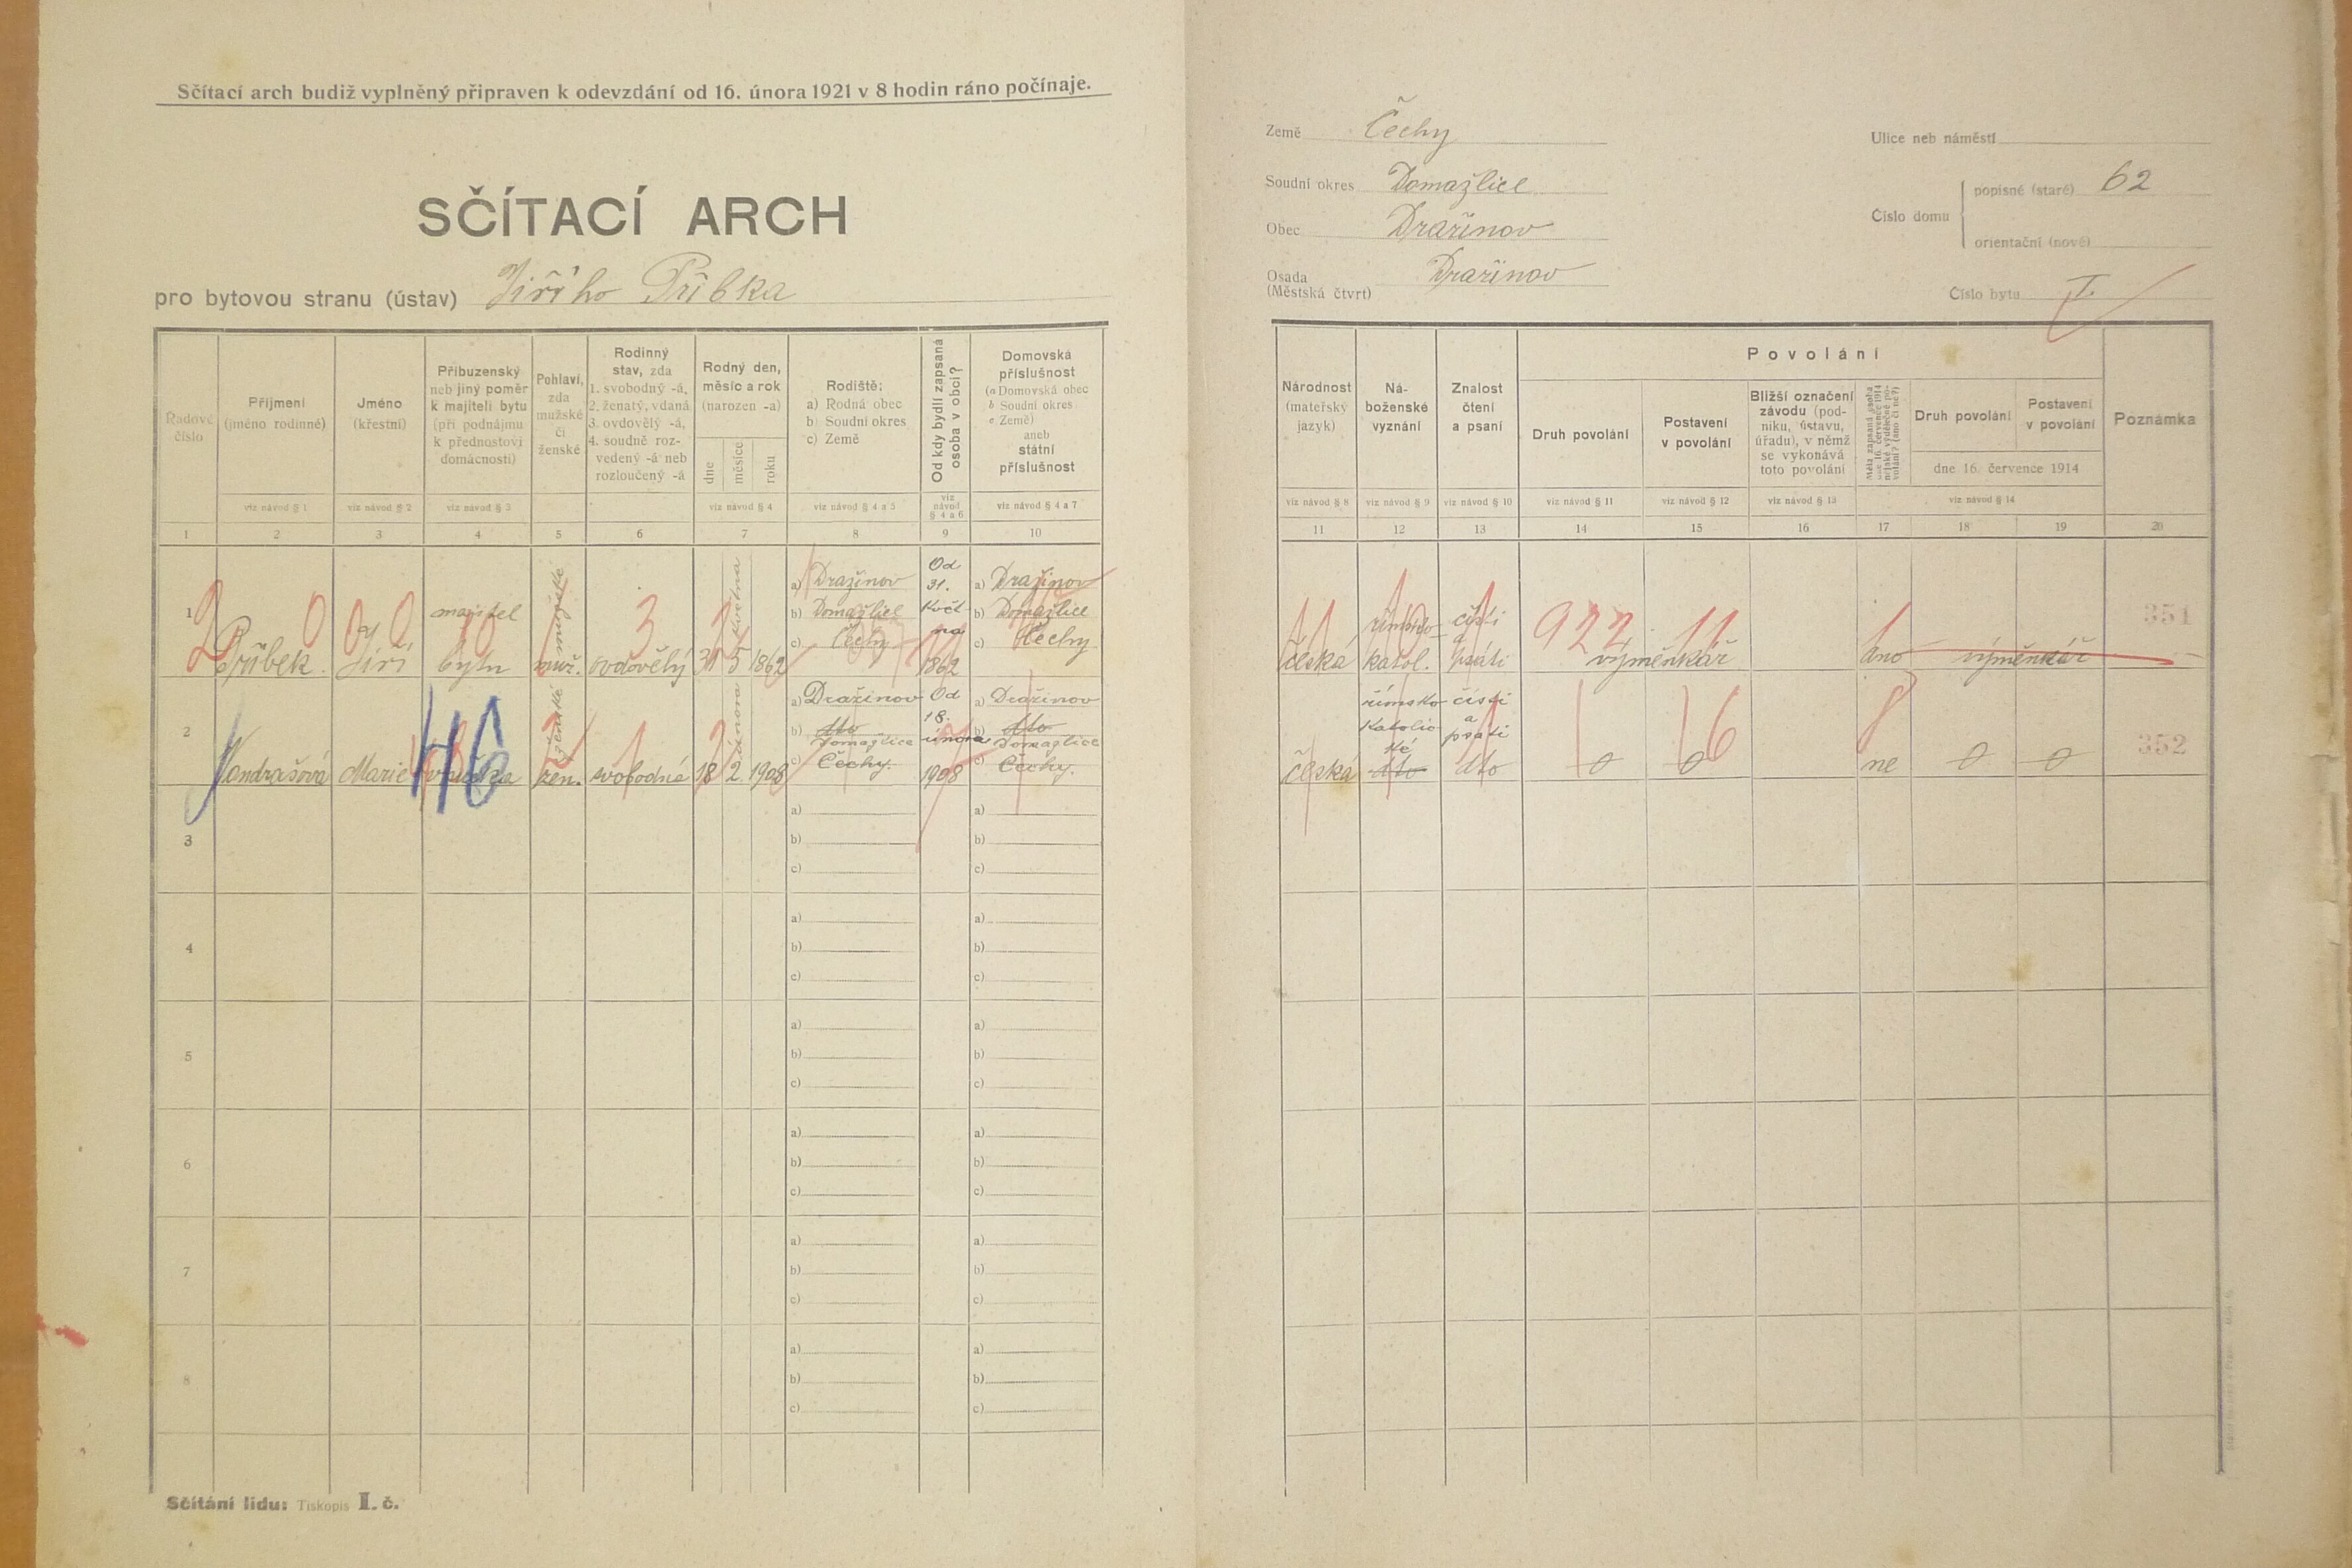 Sčítací arch budiž vyplněný připraven k odevzdání od 16. února 1921 v 8 hodin ráno počínaje.
SČÍTACÍ ARCH
pro bytovou stranu (ústav) Jiřího Přibka
Řadové číslo
1
Příjmení
(jméno rodinné)
viz návod § 1
2
Jméno
(křestní)
viz návod § 2
3
Příbuzenský
neb jiný poměr
k majiteli bytu
(při podnájmu
k přednostovi
domácnosti)
viz návod § 3
4
Pohlaví,
zda
mužské
či
ženské
5
Rodinný
stav, zda
1. svobodný -á,
2. ženatý, vdaná
3. ovdovělý -á,
4. soudně roz-
vedený -á neb
rozloučený -á
6
Rodný den,
měsíc a rok
(narozen -a)
dne
měsíce
roku
viz návod § 4
7
Rodiště:
a) Rodná obec
b) Soudní okres
c) Země
viz návod § 4 a 5
8
Od kdy bydlí zapsaná
osoba v obci?
viz
návod
§ 4 a 6
9
Domovská
příslušnost
(a Domovská obec
b Soudní okres
c Země)
aneb
státní
příslušnost
viz návod § 4 a 7
10
1
Přibek
Jiří
majitel
bytu
mužské
muž.
ovdovělý
31 5 1862
května
a) Dražinov
b) Domažlice
c) Čechy
Od
31.
květ
na
1862
a) Dražinov
b) Domažlice
c) Čechy
2
Vondrašová
Marie
vnučka
46
ženské
žen.
svobodná
18 2 1908
února
a) Dražinov
b) dto
Domažlice
c) Čechy.
Od
18.
února
1908
a) Dražinov
b) dto
Domažlice
c) Čechy.
3
a)
b)
c)
a)
b)
c)
4
a)
b)
c)
a)
b)
c)
5
a)
b)
c)
a)
b)
c)
6
a)
b)
c)
a)
b)
c)
7
a)
b)
c)
a)
b)
c)
8
a)
b)
c)
a)
b)
c)
Sčítání lidu: Tiskopis I. č.
Země Čechy
Soudní okres Domažlice
Obec Dražinov
Osada Dražinov
(Městská čtvrť)
Ulice neb náměstí
Číslo domu
popisné (staré) 62
orientační (nové)
Číslo bytu I.
Národnost
(mateřský
jazyk)
viz návod § 8
11
Ná-
boženské
vyznání
viz návod § 9
12
Znalost
čtení
a psaní
viz návod § 10
13
Povolání
Druh povolání
viz návod § 11
14
Postavení
v povolání
viz návod § 12
15
Bližší označení
závodu (pod-
niku, ústavu,
úřadu), v němž
se vykonává
toto povolání
viz návod § 13
16
Měla zapsaná osoba
dne 16. července 1914
nějaké výdělečné po-
volání? (ano či ne?)
17
Druh povolání
Postavení
v povolání
dne 16. července 1914
viz návod § 14
18
19
Poznámka
20
česká
římsko-
katol.
čísti
a
psáti
922
11
výměnkář
Ano
výměnkář
351
česká
římsko
katolic
ké
dto
čísti
a
psáti
dto
0
0
16
ne
0
0
352